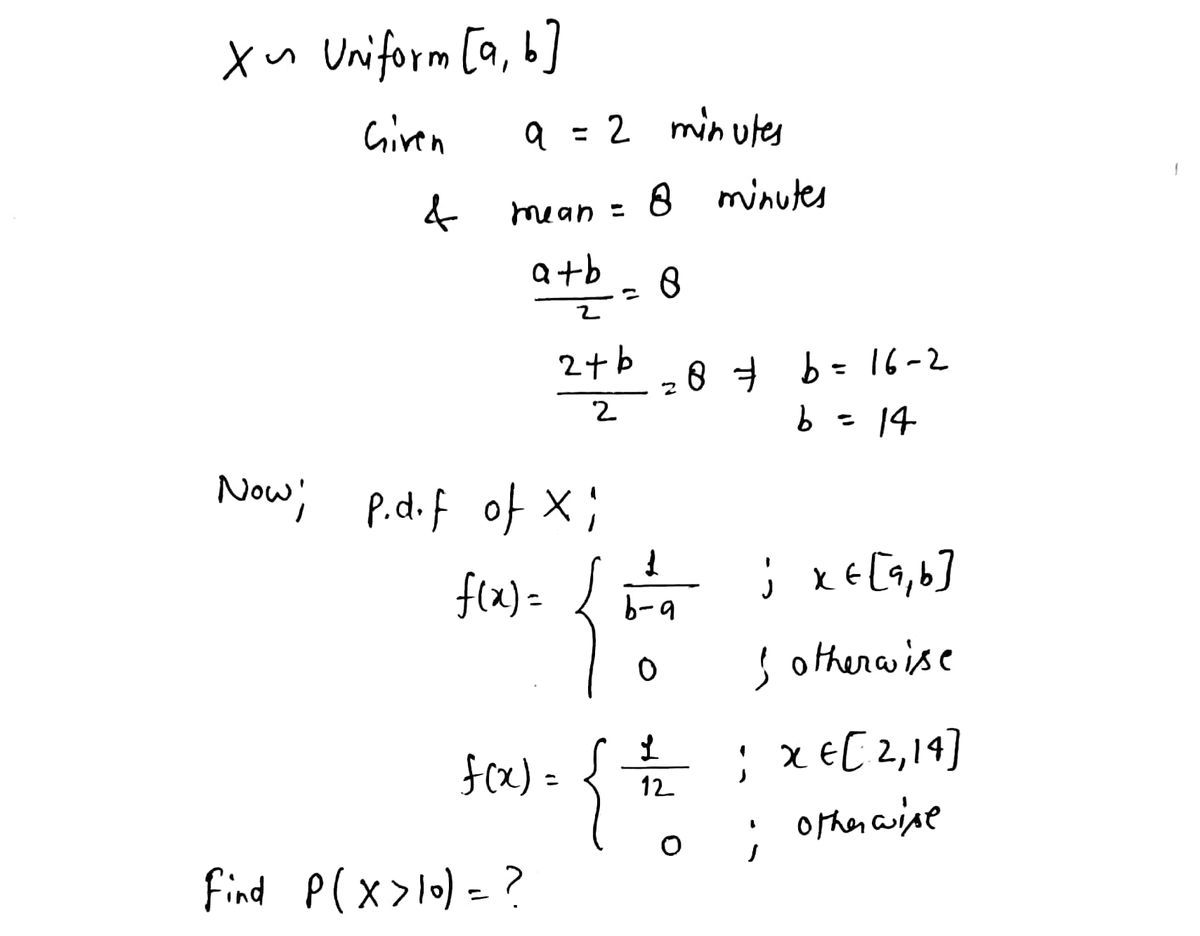 X ~ Uniform [a, b]
Given a = 2 minutes
& mean = 8 minutes
a+b/2 = 8
2+b/2 = 8 ⇒ b = 16-2
b = 14
Now; p.d.f of X;
f(x) = { 1/b-a ; x ∈ [a,b]
0 ; otherwise
f(x) = { 1/12 ; x ∈ [2,14]
0 ; otherwise
Find P(X>10) = ?